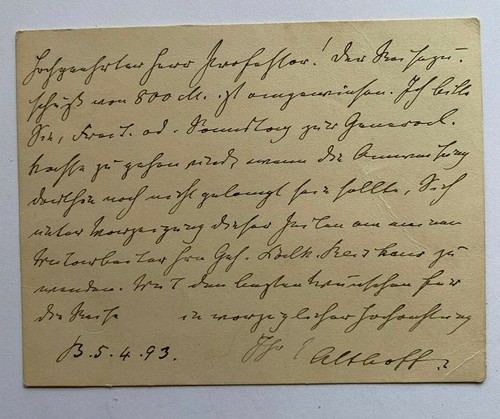 Hochgeehrter Herr Professor! Der Reisezu-
schuß von 800 M. ist angewiesen. Ich bitte
Sie, Freit. od. Sonnabend zur General-
kasse zu gehen und, wenn die Anweisung
dorthin noch nicht gelangt sein sollte, Sich
unter Vorzeigung dieser Zeilen an meinen
Mitarbeiter Hrn Geh. zu
wenden. Mit den besten Wünschen für
die Reise in vorzüglicher Hochachtung
B. 5. 4. 93. Ihr Althoff.